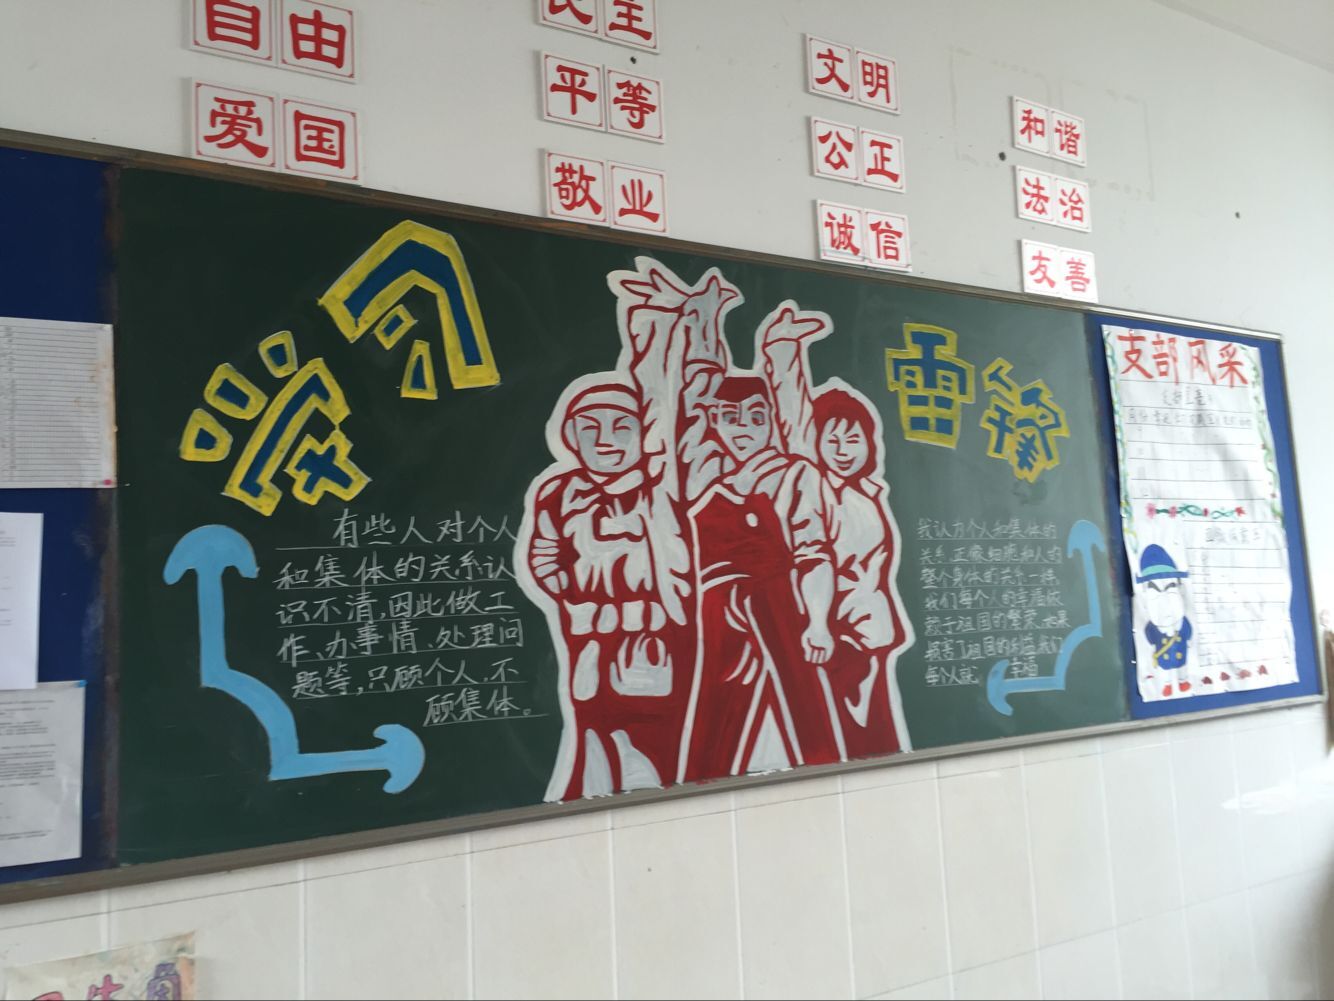 自由
民主
文明
和谐
平等
公正
法治
爱国
敬业
诚信
友善
学习
雷锋
有些人对个人
和集体的关系认
识不清,因此做工
作、办事情、处理问
题等,只顾个人,不
顾集体。
我认为个人和集体的
关系,正像细胞和人的
整个身体的关系一样,
我们每个人的幸福依
赖于祖国的繁荣,如果
损害了祖国的利益,我们
每个人就 幸福
支部风采